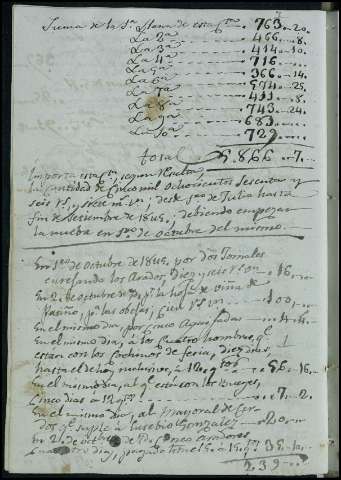 Suma de la 1ª llana de esta Cta 763..20.
La 2ª 466..8.
La 3ª 414..10.
La 4ª 716..
La 5ª 366..14.
La 6ª 574..25.
La 7ª 411..8.
La 8ª 743..24.
La 9ª 683..
La 10ª 729..
total 5.866..7.
Importa esta Cta, segun resulta,
la cantidad de Cinco mil Ochocientos Sesenta y
seis rs. y siete mrs; desde 1º de Julio hasta
fin de Setiembre de 1845,, debiendo empezar
la nueva en 1º de octubre del mismo.
En 1º de Octubre de 1845, por dos Jornales
enrejando los Arados, Diez y seis rs. von 16,,
En 2 de octubre de id, pr la hoja de viña de
Patiño, pa las obejas, Cien rs. von 100,,
En el mismo dia, por Cinco
En el mismo dia, á los Quatro hombres, qe
estan con los Cochinos de feria, diez dias
hasta el de hoy inclusive, á 12 qtos 56,, 16.
En el mismo dia, al qe está con los Bueyes,
Cinco dias á 12 qtos 7,, 2.
En el mismo dia, al Mayoral de Cer-
dos qe suple á Eusebio Gonzalez 20,,
En 2 de octubre de id, Cinco Aradores
239